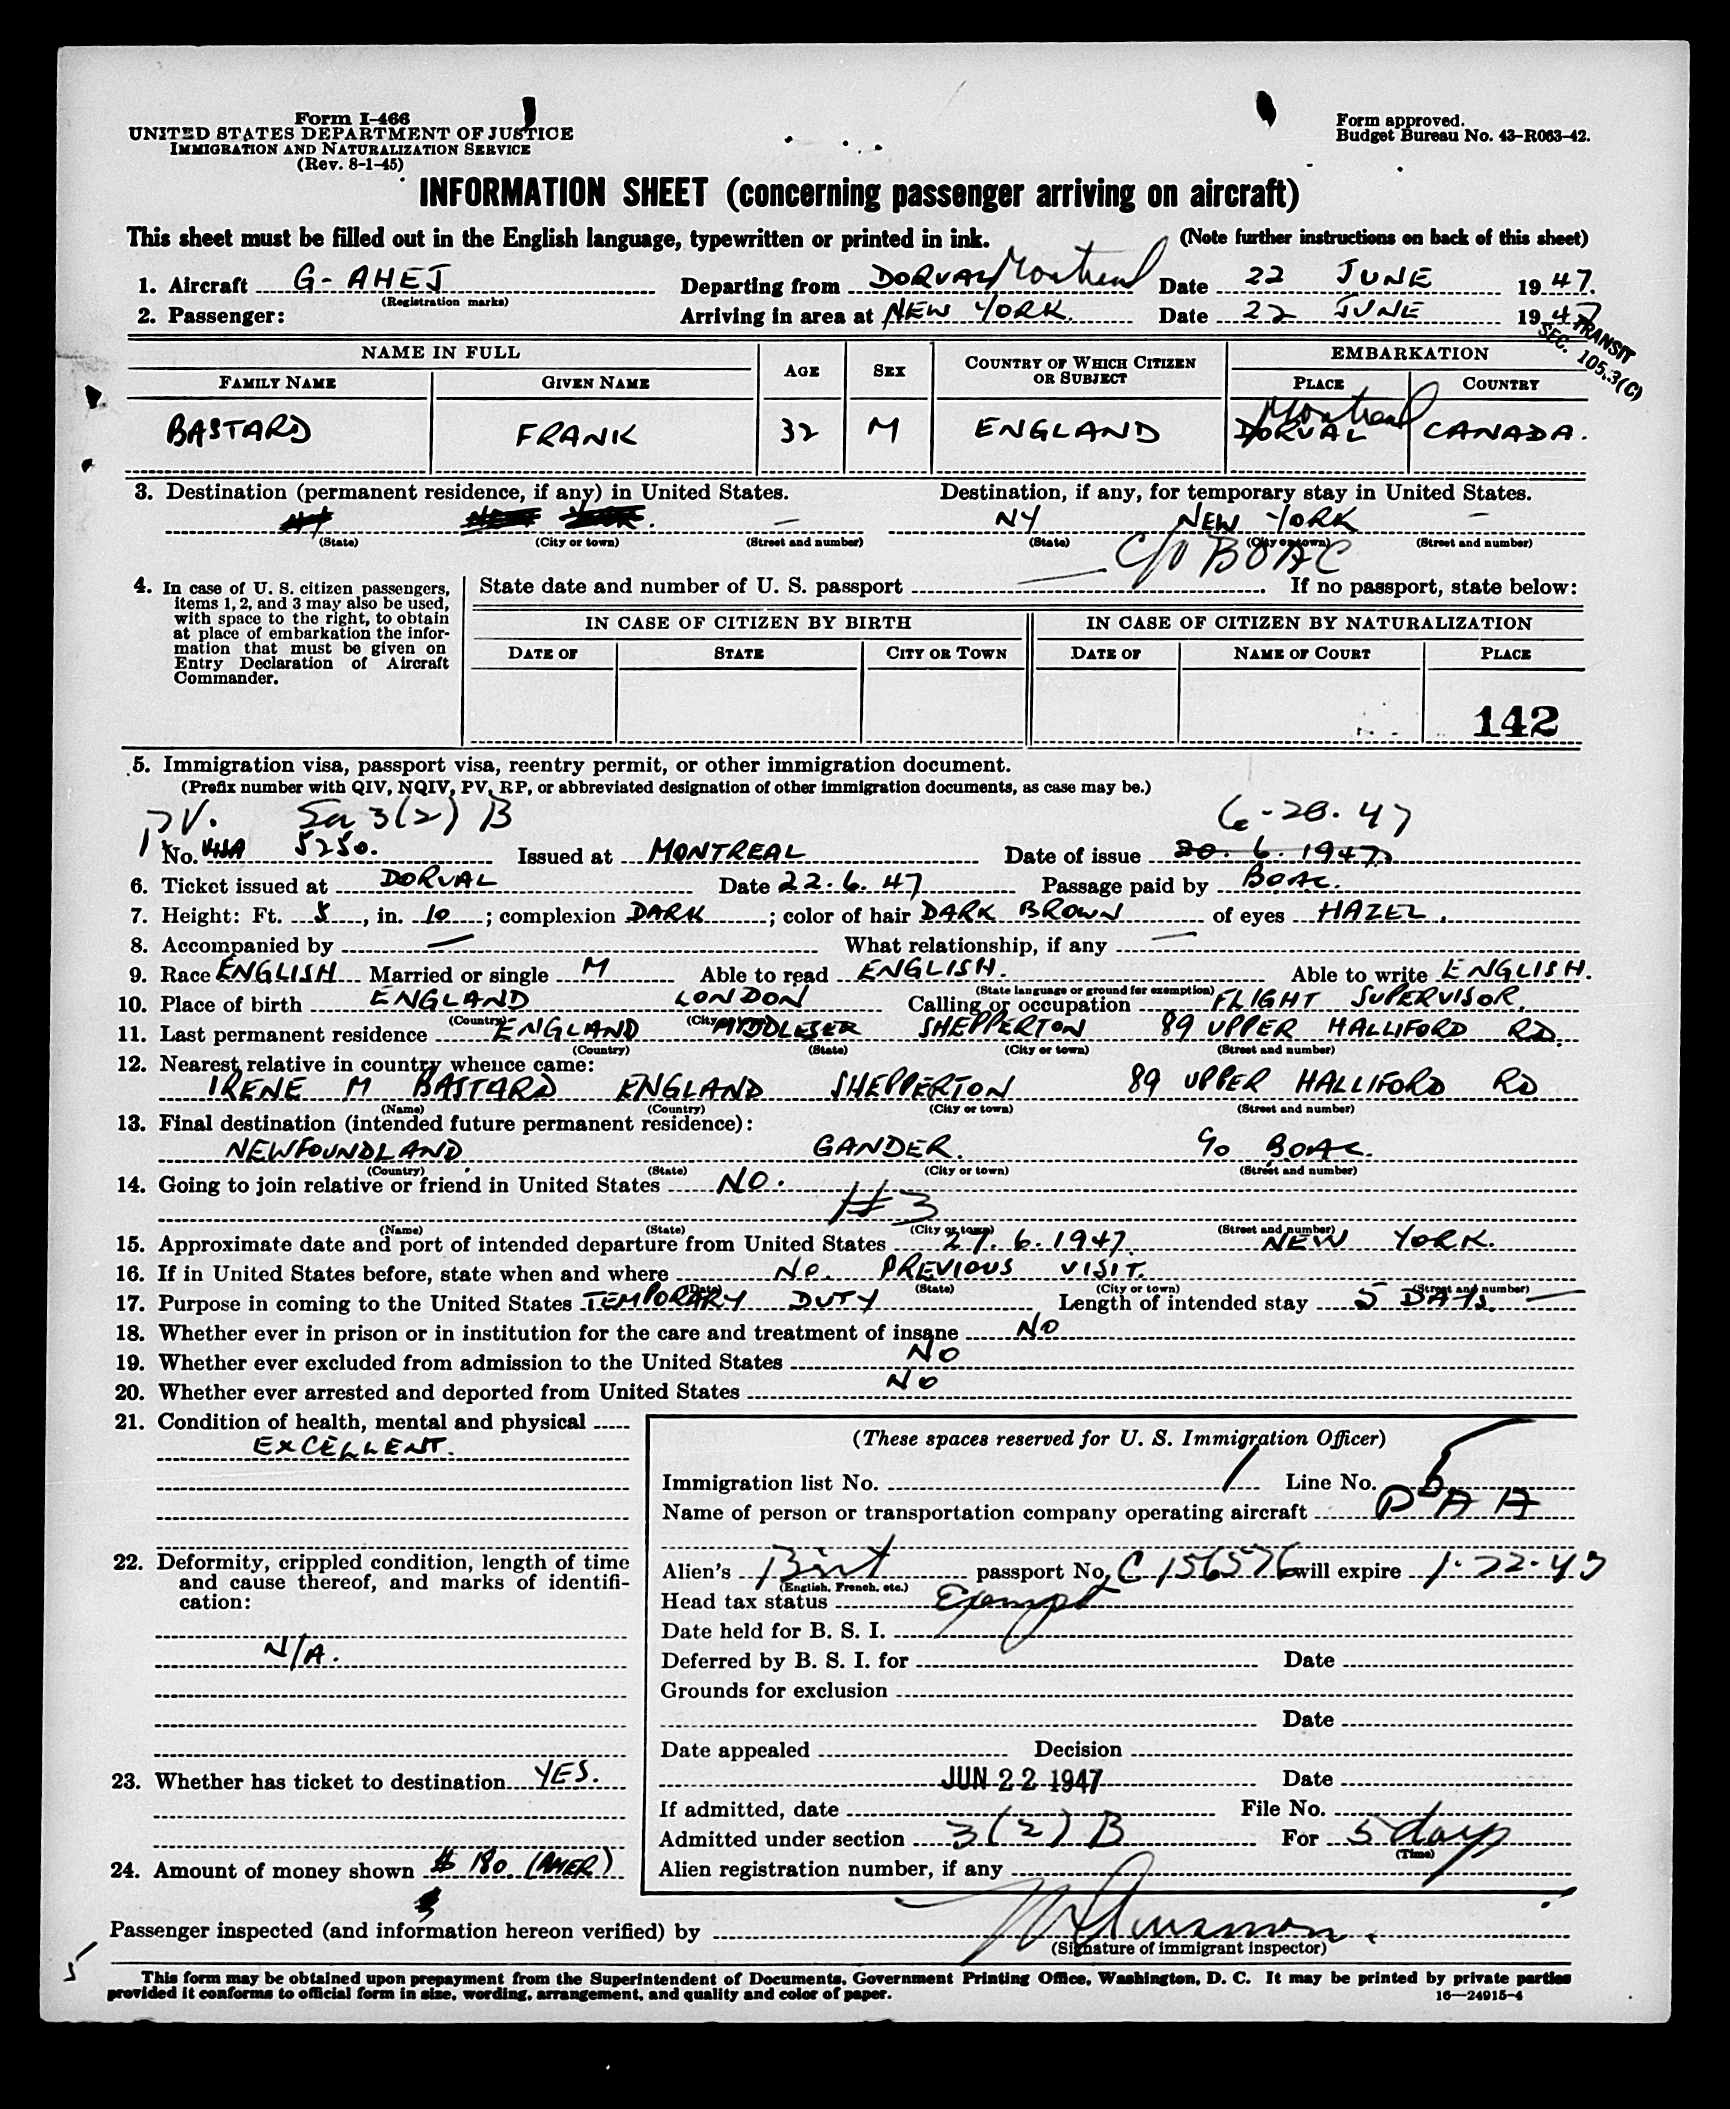 Form I-466
UNITED STATES DEPARTMENT OF JUSTICE
IMMIGRATION AND NATURALIZATION SERVICE
(Rev. 8-1-45)
Form approved.
Budget Bureau No. 43-R063-42.
INFORMATION SHEET (concerning passenger arriving on aircraft)
This sheet must be filled out in the English language, typewritten or printed in ink. (Note further instructions on back of this sheet)
1. Aircraft G-AHEJ Departing from DORVAL Montreal Date 22 JUNE 1947.
(Registration marks)
2. Passenger: Arriving in area at NEW YORK. Date 22 JUNE 1947
TRANSIT
SEC. 105.3(C)
NAME IN FULL AGE SEX COUNTRY OF WHICH CITIZEN OR SUBJECT EMBARKATION
FAMILY NAME GIVEN NAME PLACE COUNTRY
Montreal
BASTARD FRANK 32 M ENGLAND DORVAL CANADA.
3. Destination (permanent residence, if any) in United States. Destination, if any, for temporary stay in United States.
NY NEW YORK. — NY NEW YORK —
(State) (City or town) (Street and number) (State) (City or town) (Street and number)
C/O BOAC
4. In case of U. S. citizen passengers, items 1, 2, and 3 may also be used, with space to the right, to obtain at place of embarkation the information that must be given on Entry Declaration of Aircraft Commander.
State date and number of U. S. passport — If no passport, state below:
IN CASE OF CITIZEN BY BIRTH IN CASE OF CITIZEN BY NATURALIZATION
DATE OF STATE CITY OR TOWN DATE OF NAME OF COURT PLACE
142
5. Immigration visa, passport visa, reentry permit, or other immigration document.
(Prefix number with QIV, NQIV, PV, RP, or abbreviated designation of other immigration documents, as case may be.)
PV. 3(2) B 6-20.47
No. VISA 5250. Issued at MONTREAL Date of issue 20.6.1947.
6. Ticket issued at DORVAL Date 22.6.47 Passage paid by BOAC.
7. Height: Ft. 5, in. 10; complexion DARK; color of hair DARK BROWN of eyes HAZEL.
8. Accompanied by — What relationship, if any —
9. Race ENGLISH Married or single M Able to read ENGLISH. Able to write ENGLISH.
(State language or ground for exemption)
10. Place of birth ENGLAND LONDON Calling or occupation FLIGHT SUPERVISOR.
(Country) (City or town)
11. Last permanent residence ENGLAND MIDDLESEX SHEPPERTON 89 UPPER HALLIFORD RD.
(Country) (State) (City or town) (Street and number)
12. Nearest relative in country whence came:
IRENE M BASTARD ENGLAND SHEPPERTON 89 UPPER HALLIFORD RD
(Name) (Country) (City or town) (Street and number)
13. Final destination (intended future permanent residence):
NEWFOUNDLAND. GANDER. C/O BOAC.
(Country) (State) (City or town) (Street and number)
14. Going to join relative or friend in United States NO.
#3
(Name) (State) (City or town) (Street and number)
15. Approximate date and port of intended departure from United States 27.6.1947. NEW YORK.
16. If in United States before, state when and where NO. PREVIOUS VISIT.
(Date) (State) (City or town) (Street and number)
17. Purpose in coming to the United States TEMPORARY DUTY Length of intended stay 5 DAYS. —
18. Whether ever in prison or in institution for the care and treatment of insane NO
19. Whether ever excluded from admission to the United States NO
20. Whether ever arrested and deported from United States NO
21. Condition of health, mental and physical
EXCELLENT.
22. Deformity, crippled condition, length of time and cause thereof, and marks of identification:
N/A.
23. Whether has ticket to destination YES.
24. Amount of money shown $ 180. (AMER)
(These spaces reserved for U. S. Immigration Officer)
Immigration list No. 1 Line No. 5
Name of person or transportation company operating aircraft P A A
Alien's Brit passport No. C 156576 will expire 1-22-49
(English, French, etc.)
Head tax status Exempt
Date held for B. S. I.
Deferred by B. S. I. for Date
Grounds for exclusion
Date
Date appealed Decision
JUN 22 1947 Date
If admitted, date File No.
Admitted under section 3(2) B For 5 days
(Time)
Alien registration number, if any
Passenger inspected (and information hereon verified) by
(Signature of immigrant inspector)
5
This form may be obtained upon prepayment from the Superintendent of Documents, Government Printing Office, Washington, D. C. It may be printed by private parties
provided it conforms to official form in size, wording, arrangement, and quality and color of paper. 16—24915-4